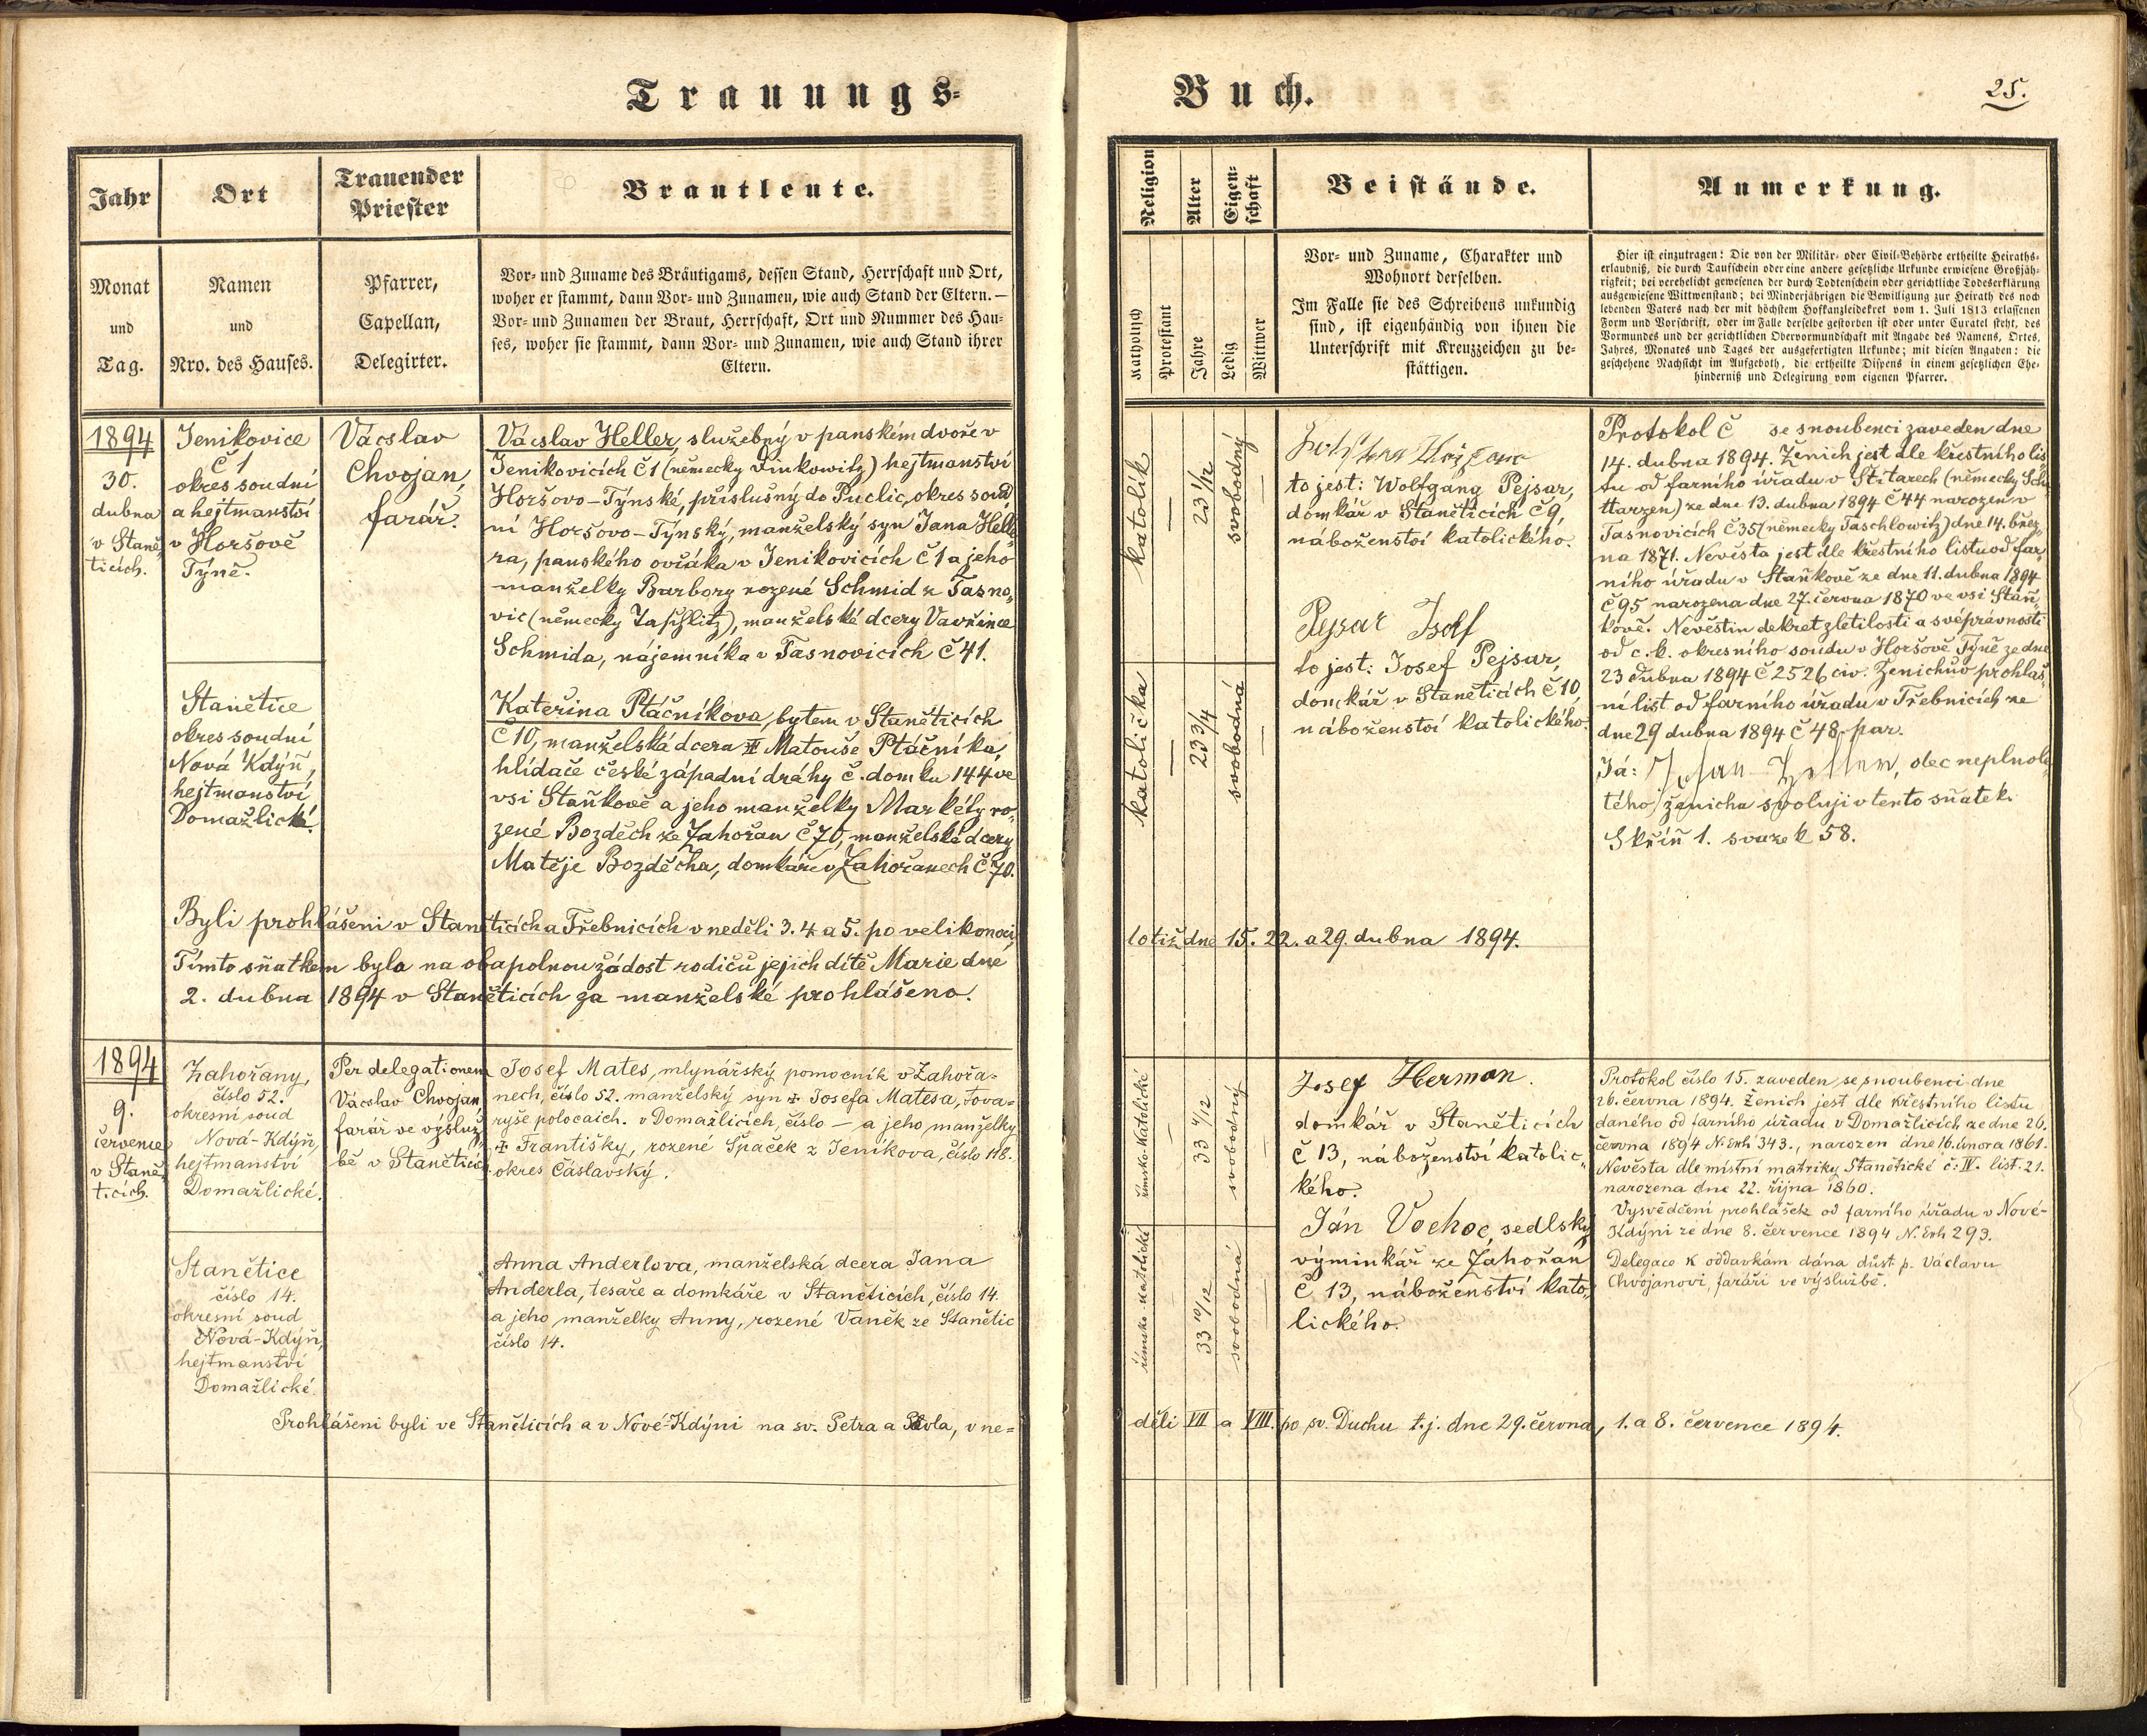 Trauungs-
Buch.
25.
Jahr
Ort
Trauender
Priester
Brautleute.
Religion
Alter
Eigen-
schaft
Beistände.
Anmerkung.
Monat
und
Tag.
Namen
und
Nro. des Hauses.
Pfarrer,
Capellan,
Delegirter.
Vor- und Zuname des Bräutigams, dessen Stand, Herrschaft und Ort,
woher er stammt, dann Vor- und Zunamen, wie auch Stand der Eltern. —
Vor- und Zunamen der Braut, Herrschaft, Ort und Nummer des Hau-
ses, woher sie stammt, dann Vor- und Zunamen, wie auch Stand ihrer
Eltern.
Katholisch
Protestant
Jahre
Ledig
Wittwer
Vor- und Zuname, Charakter und
Wohnort derselben.
Im Falle sie des Schreibens unkundig
sind, ist eigenhändig von ihnen die
Unterschrift mit Kreuzzeichen zu be-
stättigen.
Hier ist einzutragen: Die von der Militär- oder Civil-Behörde ertheilte Heiraths-
erlaubniß, die durch Taufschein oder eine andere gesetzliche Urkunde erwiesene Großjäh-
rigkeit; bei verehelicht gewesenen der durch Todtenschein oder gerichtliche Todeserklärung
ausgewiesene Wittwenstand; bei Minderjährigen die Bewilligung zur Heirath des noch
lebenden Vaters nach der mit höchstem Hofkanzleidekret vom 1. Juli 1813 erlassenen
Form und Vorschrift, oder im Falle derselbe gestorben ist oder unter Curatel steht, des
Vormundes und der gerichtlichen Obervormundschaft mit Angabe des Namens, Ortes,
Jahres, Monates und Tages der ausgefertigten Urkunde; mit diesen Angaben: die
geschehene Nachsicht im Aufgeboth, die ertheilte Dispens in einem gesetzlichen Ehe-
hinderniß und Delegirung vom eigenen Pfarrer.
1894
30.
dubna
v Staně-
ticích.
Jenikovice
č 1
okres soudní
a hejtmanství
v Horšově
Týně.
Vácslav
Chvojan,
farář.
Vácslav Heller, služebný v panském dvoře v
Jenikovicích č 1 (německy Linkowitz) hejtmanství
Horšovo-Týnské, příslušný do Puclic, okres soud-
ní Horšovo-Týnský, manželský syn Jana Helle-
ra, panského ovčáka v Jenikovicích č 1 a jeho
manželky Barbory rozené Schmid z Tasno-
vic (německy Taschlitz), manželské dcery Vavřince
Schmida, nájemníka v Tasnovicích č 41.
katolík
—
23 1/12
svobodný
—
to jest: Wolfgang Pejsar,
domkář v Staněticích č 9,
náboženství katolického.
Pejsar Josef
to jest: Josef Pejsar,
domkář v Staněticích č 10,
náboženství katolického.
Protokol č se snoubenci zaveden dne
14. dubna 1894. Ženich jest dle křestního lis-
tu od farního úřadu v Štítarech (německy Schü-
ttarzen) ze dne 13. dubna 1894 č 44 narozen v
Tasnovicích č 35 (německy Taschlowitz) dne 14. břez-
na 1871. Nevěsta jest dle křestního listu od far-
ního úřadu v Staňkově ze dne 11. dubna 1894
č 95 narozena dne 27. června 1870 ve vsi Staň-
kově. Nevěstin dekret zletilosti a svéprávnosti
od c. k. okresního soudu v Horšově Týně ze dne
23 dubna 1894 č 2526 civ. Ženichův prohláš-
ní list od farního úřadu v Třebnicích ze
dne 29 dubna 1894 č 48. par.
Já: Johan Heller, otec neplnole-
tého ženicha svoluji v tento sňatek.
Skříň 1. svazek 58.
Stanětice
okres soudní
Nová Kdýň,
hejtmanství
Domažlické.
Kateřina Ptáčníkova, bytem v Staněticích
č 10, manželská dcera Matouše Ptáčníka,
hlídače české západní dráhy č. domku 144 ve
vsi Staňkově a jeho manželky Markéty ro-
zené Bozděch ze Zahořan č 70, manželské dcery
Matěje Bozděcha, domkáře v Zahořanech č 70.
katolička
—
23 3/4
svobodná
—
Byli prohlášeni v Staněticích a Třebnicích v neděli 3. 4 a 5. po velikonoci,
totiž dne 15. 22. a 29. dubna 1894.
Tímto sňatkem bylo na obapolnou žádost rodičů jejich dítě Marie dne
2. dubna 1894 v Staněticích za manželské prohlášeno.
1894
9.
července
v Staně-
ticích.
Zahořany,
číslo 52.
okresní soud
Nová-Kdýň,
hejtmanství
Domažlické.
Per delegationem
Vácslav Chvojan,
farář ve výsluž-
bě v Staněticích
Josef Mates, mlynářský pomocník v Zahořa-
nech, číslo 52. manželský syn ✝ Josefa Matesa, tova-
ryše v Domažlicích, číslo — a jeho manželky
✝ Františky, rozené Špaček z Jeníkova, číslo 118.
okres Čáslavský.
římsko-katolické
—
33 4/12
svobodný
—
Josef Herman.
domkář v Staněticích
č 13, náboženství katolic-
kého.
Ján Vochoc, sedlský
výminkář ze Zahořan
č 13, náboženství kato-
lického.
Protokol číslo 15. zaveden se snoubenci dne
26. června 1894. Ženich jest dle křestního listu
daného od farního úřadu v Domažlicích ze dne 26.
června 1894 N. Exh 343., narozen dne 16. února 1861.
Nevěsta dle místní matriky Stanětické č: IV. list. 21.
narozena dne 22. října 1860.
Vysvědčení prohlášek od farního úřadu v Nové-
Kdýni ze dne 8. července 1894 N. Exh 293.
Delegace k oddavkám dána důst p. Václavu
Chvojanovi, faráři ve výslužbě.
Stanětice
číslo 14.
okresní soud
Nová-Kdýň,
hejtmanství
Domažlické.
Anna Anderlova, manželská dcera Jana
Anderla, tesaře a domkáře v Staněticích, číslo 14.
a jeho manželky Anny, rozené Vaněk ze Stanětic
číslo 14.
římsko-katolické
33 10/12
svobodná
Prohlášeni byli ve Staněticích a v Nové-Kdýni na sv. Petra a Pavla, v ne-
děli VII a VIII. po sv. Duchu t. j. dne 29. června, 1. a 8. července 1894.